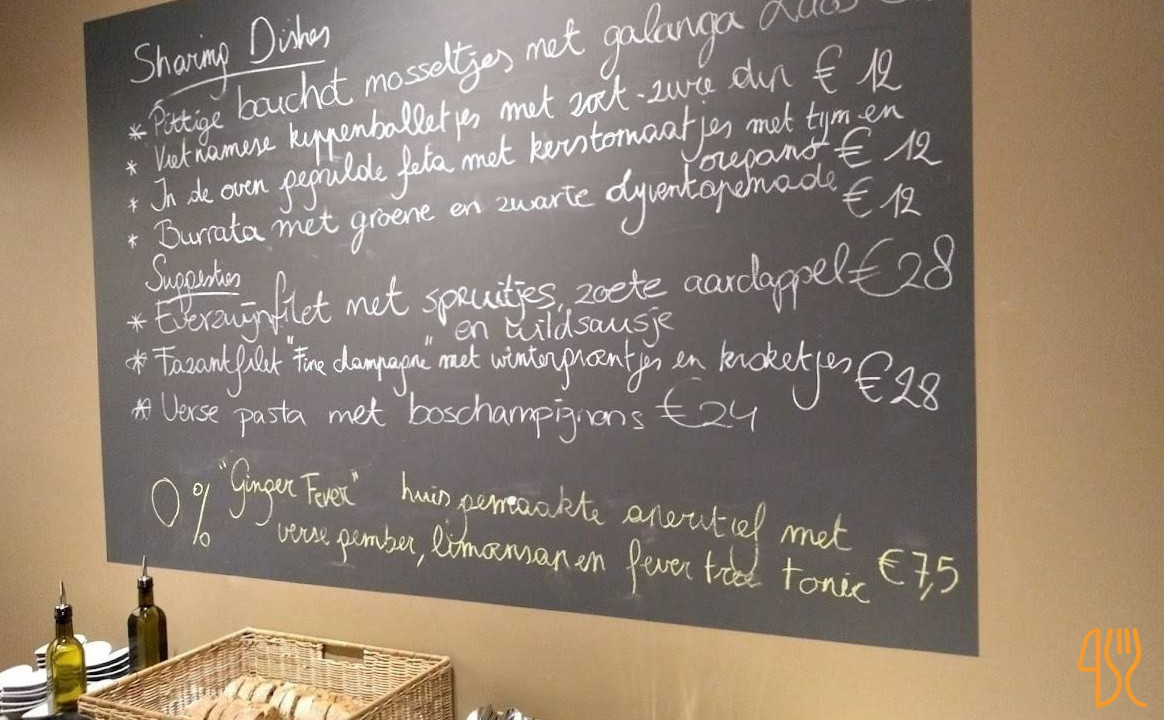 Sharing Dishes
* Pittige bouchot mosseltjes met galanga Laos
* Vietnamese kippenballetjes met zoet-zure dip € 12
* In de oven gegrilde feta met kerstomaatjes met tijm en
oregano € 12
* Burrata met groene en zwarte olijventapenade € 12
Suggesties
* Everzwijnfilet met spruitjes, zoete aardappel € 28
en wildsausje
* Fazantfilet "Fine champagne" met wintergroentjes en kroketjes € 28
* Verse pasta met boschampignons € 24
0% "Ginger Fever" huisgemaakte aperitief met
verse gember, limoensap en fever tree tonic € 7,5